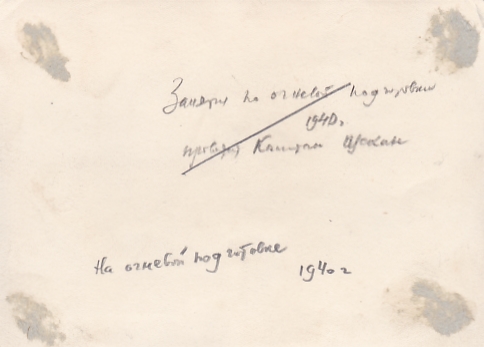 Занятия по огневой подготовки
1940г.
проводит Капитан
На огневой подготовке
1940 г